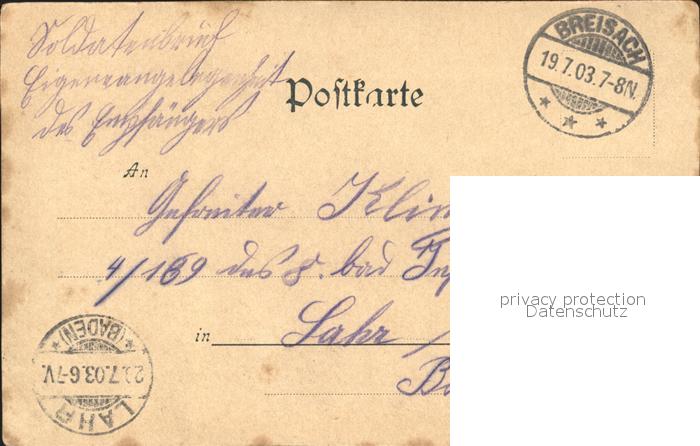 Soldatenbrief
Eigene Angelegenheit
des Empfängers
Postkarte
BREISACH
19.7.03.7-8N.
An
Gefreiter
4/169 des 8. bad
privacy protection
Datenschutz
in Lahr /
LAHR
7.03.6-7V.
*(BADEN)*